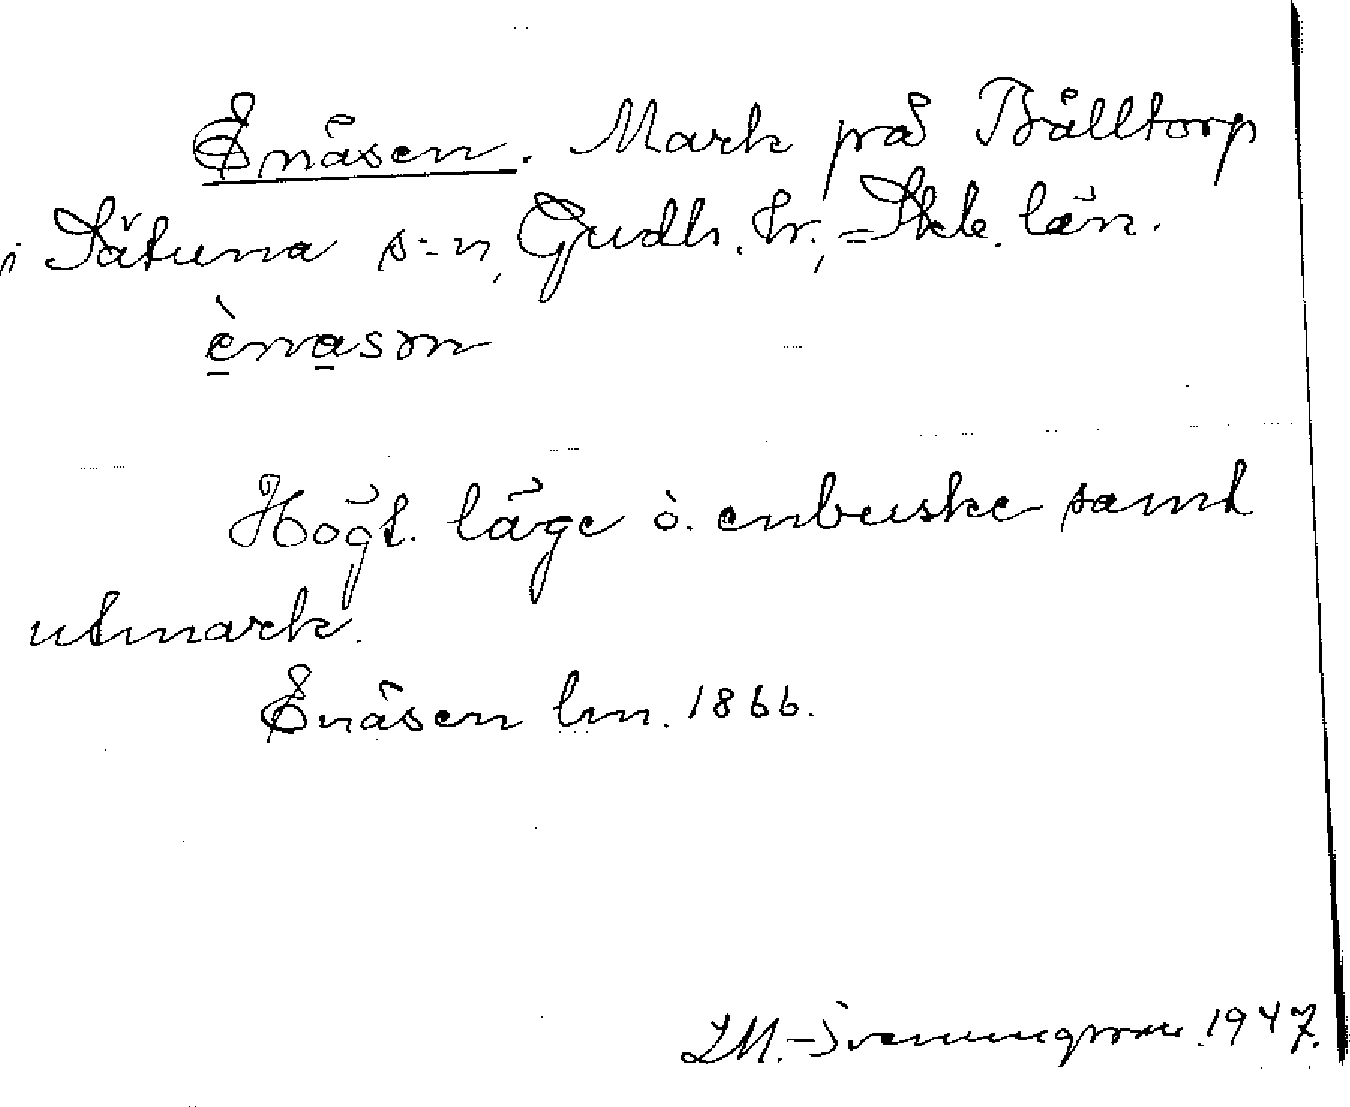 Enåsen. Mark på Bålltorp
i Sätuna s:n, Gudh. hr., Skb. län.
ènason
Högt. läge ò. enbuske samt
utmark.
Enåsen lm. 1866.
1947.